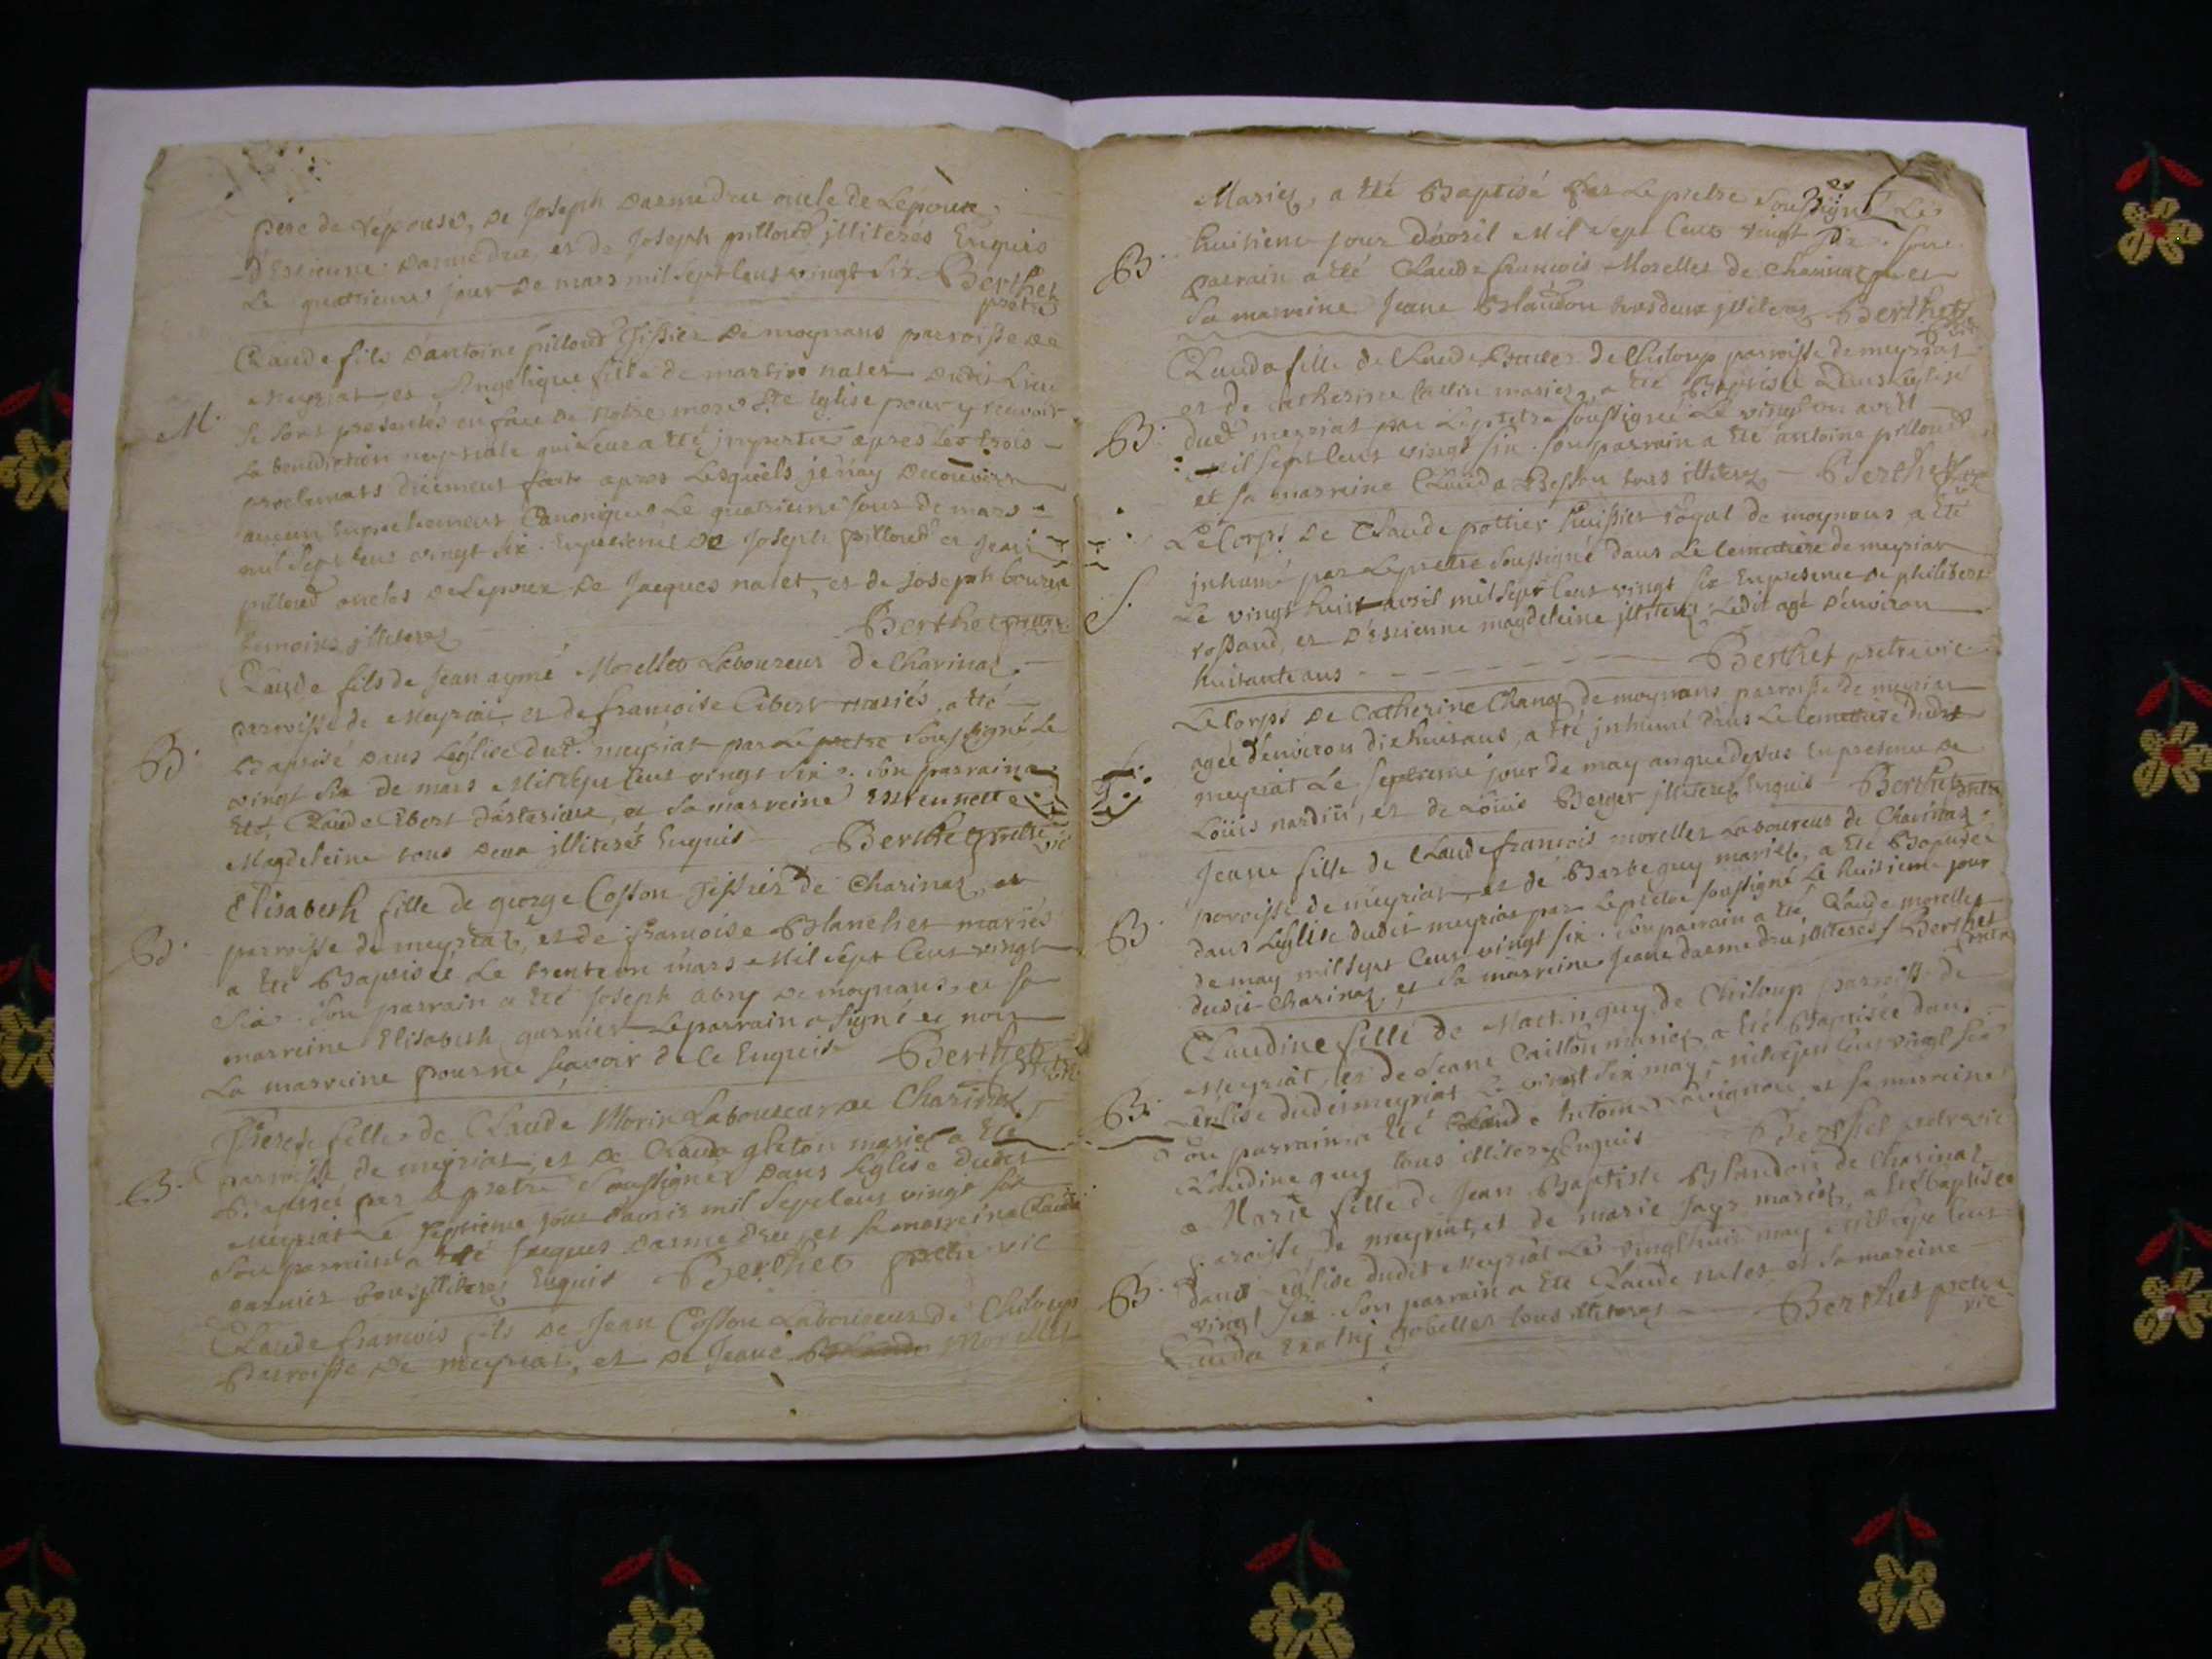 père de Lépouse, de Joseph darmedru oncle de Lépoux,
d'Estienne darmedru et de Joseph pilloud illiteres Enquis
Le quatrieme jour de mars mil sept cens vingt six Berthet
prêtre
Claude fils d'antoine pilloud Tissier de moynans parroisse de
Meyriat et Angelique fille de martin nalet dudit Lieu
M. se sont presentés en face de notre mere Ste Eglise pour y recevoir
La benediction nuptiale qui leur a été impartie apres les trois
proclamats düement faits apres Lesquels je n'ay decouvert
aucun Empechement Canonique Le quatrieme jour de mars
mil sept cens vingt six. En presence de Joseph pilloud et Jean
pilloud oncles de Lepoux de Jacques nalet, et de joseph
temoins illiteres Berthet prêtre vic.
Claude fils de Jean aymé Morellet Laboureur de Charinaz
parroisse de Meyriat et de francoise Cibert mariés, a été
B. Baptisé dans Léglise dud. meyriat par Le pretre soussigné Le
vingt six de mars Mil sept cens vingt six. Son parrain a
Eté Claude Cibert et sa marreine Estiennette
Magdeleine tous deux illiterés Enquis Berthet pretre
vic
Elisabeth fille de george Cosson Tissier de Charinaz
B. parroisse de meyriat, et de francoise Blanchet mariés
a Eté Baptisée Le trente un mars Mil sept Cens vingt
six. Son parrain a Eté Joseph abry de moynans, et sa
marreine Elisabeth garnier Le parrain a signé et non
La marreine pour ne scavoir de ce Enquise Berthet
fille de Claude Morin Laboureur de Charinaz
parroisse de meyriat, et de Clauda gleton mariés a Eté
B. Baptisée par le pretre soussigné dans Léglise dudit
Meyriat Le septieme jour d'avril mil sept cens vingt six
Son parrain a été Jacques darmedru, et sa marreine Clauda
garnier tous illiterez Enquis Berthet pretre vic
Claude francois fils de Jean Cosson Laboureur de Chiloup
Parroisse de meyriat, et de Jeane Morellet
Mariez, a été Baptisé par Le pretre soussigné Le
B. huitieme jour d'avril Mil sept Cens vingt six. son
parrain a été Claude francois Morellet de Charinaz et
sa marreine Jeane Blandon tous deux illiterez Berthet
Clauda fille de Claude de Chiloup parroisse de meyriat
et de Catherine mariez, a été Baptisée dans Léglise
B. dud. meyriat par Le pretre soussigné Le vingt un avril
mil sept cens vingt six. son parrain a été antoine pilloud
et sa marreine Clauda Besson tous illiterez Berthet
Le Corps de Claude pottier huissier royal de moynans a été
inhumé par Le pretre soussigné dans Le Cemetiere de meyriat
S. Le vingt huit avril mil sept cens vingt six En presence de philibert
rossand, et d'estienne magdeleine illiterez. Ledit agé d'environ
huitante ans Berthet pretre vic
Le Corps de Catherine Chanel de moynans parroisse de meyriat
agée d'environ dix huit ans, a été inhumé dans Le Cemetiere dudit
meyriat Le septieme jour de may an que dessus En presence de
Loüis nardin, et de Loüis Berger illiterez Enquis Berthet pretre
Jeane fille de Claude francois morellet Laboureur de Charinaz
parroisse de meyriat, et de Barbe guy mariez, a été Baptisée
B. dans Léglise dudit meyriat par Le pretre soussigné Le huitieme jour
de may mil sept Cens vingt six. son parrain a été Claude morellet
dudit Charinaz et sa marreine Jeane darmedru illiterés Berthet
Claudine fille de Martin guy de Chiloup parroisse de
Meyriat, et de Jeane Caillon mariez, a été Baptisée dans
B. Léglise dudit meyriat Le vingt six may mil sept cens vingt six
Son parrain a été Claude et sa marreine
Claudine guy tous illiterez Enquis Berthet pretre vic
Marie fille de Jean Baptiste Blandon de Charinaz
paroisse de meyriat, et de marie Jays mariez, a été baptisée
B. dans Léglise dudit Meyriat Le vingt huit may Mil sept Cens
vingt six. Son parrain a été Claude nalet et sa mareine
Clauda gobellet tous illiteres Berthet pretre
vic